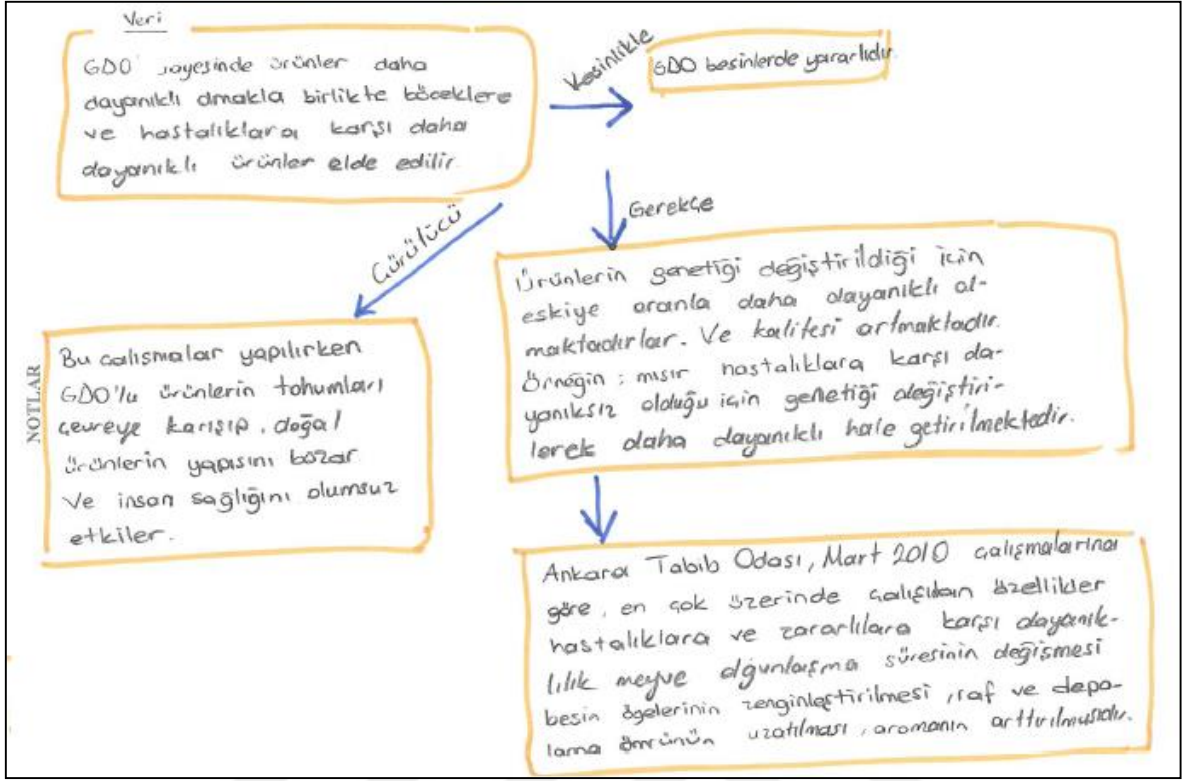 Veri
GDO sayesinde ürünler daha
dayanıklı olmakla birlikte böceklere
ve hastalıklara karşı daha
dayanıklı ürünler elde edilir.
Kesinlikle
GDO besinlerde yararlıdır.
Gerekçe
Ürünlerin genetiği değiştirildiği için
eskiye oranla daha dayanıklı ol-
maktadırlar. Ve kalitesi artmaktadır.
Örneğin: mısır hastalıklara karşı da-
yanıksız olduğu için genetiği değiştiri-
lerek daha dayanıklı hale getirilmektedir.
Çürütücü
NOTLAR
Bu calışmalar yapılırken
GDO'lu ürünlerin tohumları
çevreye karışıp, doğal
ürünlerin yapısını bozar
ve insan sağlığını olumsuz
etkiler.
Ankara Tabib Odası, Mart 2010 çalışmalarına
göre, en çok üzerinde çalışılan özellikler
hastalıklara ve zararlılara karşı dayanık-
lılık meyve olgunlaşma süresinin değişmesi
besin ögelerinin zenginleştirilmesi, raf ve depo-
lama ömrünün uzatılması, aromanın arttırılmasıdır.